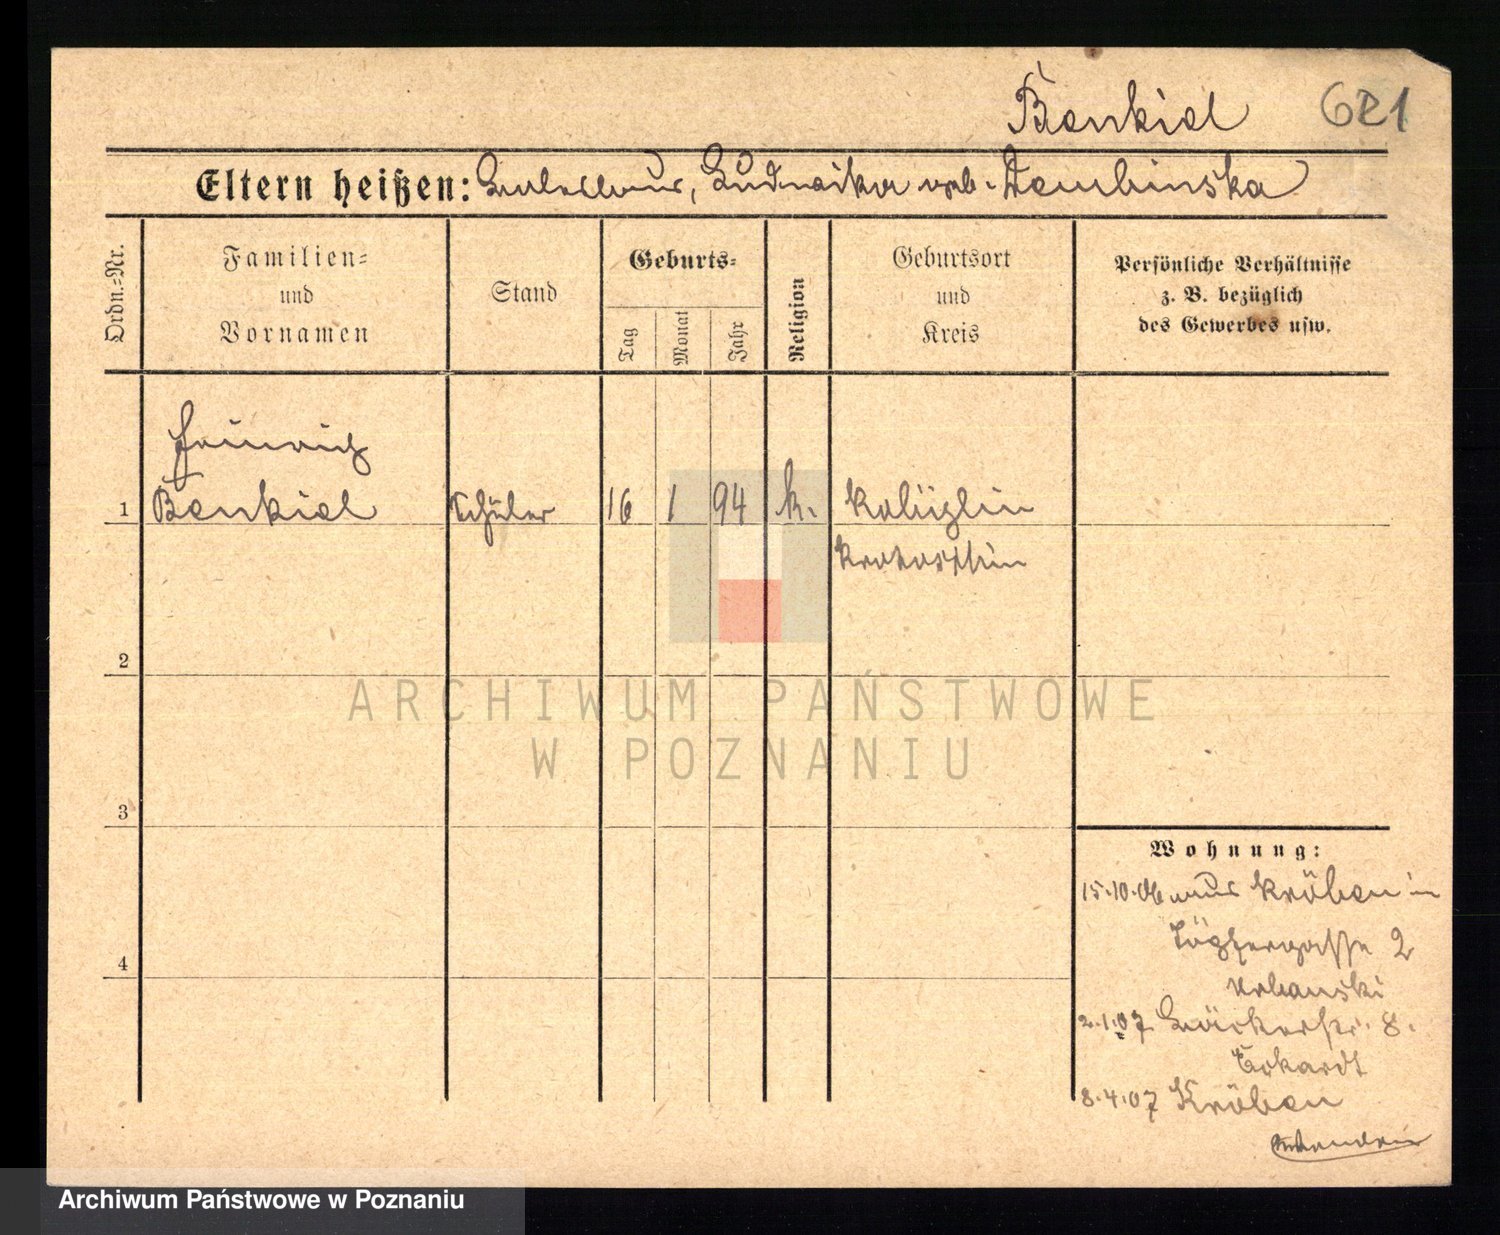 Benkiel 621
Eltern heißen: Ludwika geb. Dembinska
Ordn.-Nr.
Familien-
und
Vornamen
Stand
Geburts-
Tag
Monat
Jahr
Religion
Geburtsort
und
Kreis
Persönliche Verhältnisse
z. B. bezüglich
des Gewerbes usw.
Heinrich
1 Benkiel Schüler 16 1 94 k.
Krotoschin
2
ARCHIWUM PAŃSTWOWE
W POZNANIU
3
Wohnung:
15.10.06 aus Kröben in
2
Urbanski
4
2.1.07 Bäckerstr. 8.
Eckardt
8.4.07 Kröben
Archiwum Państwowe w Poznaniu